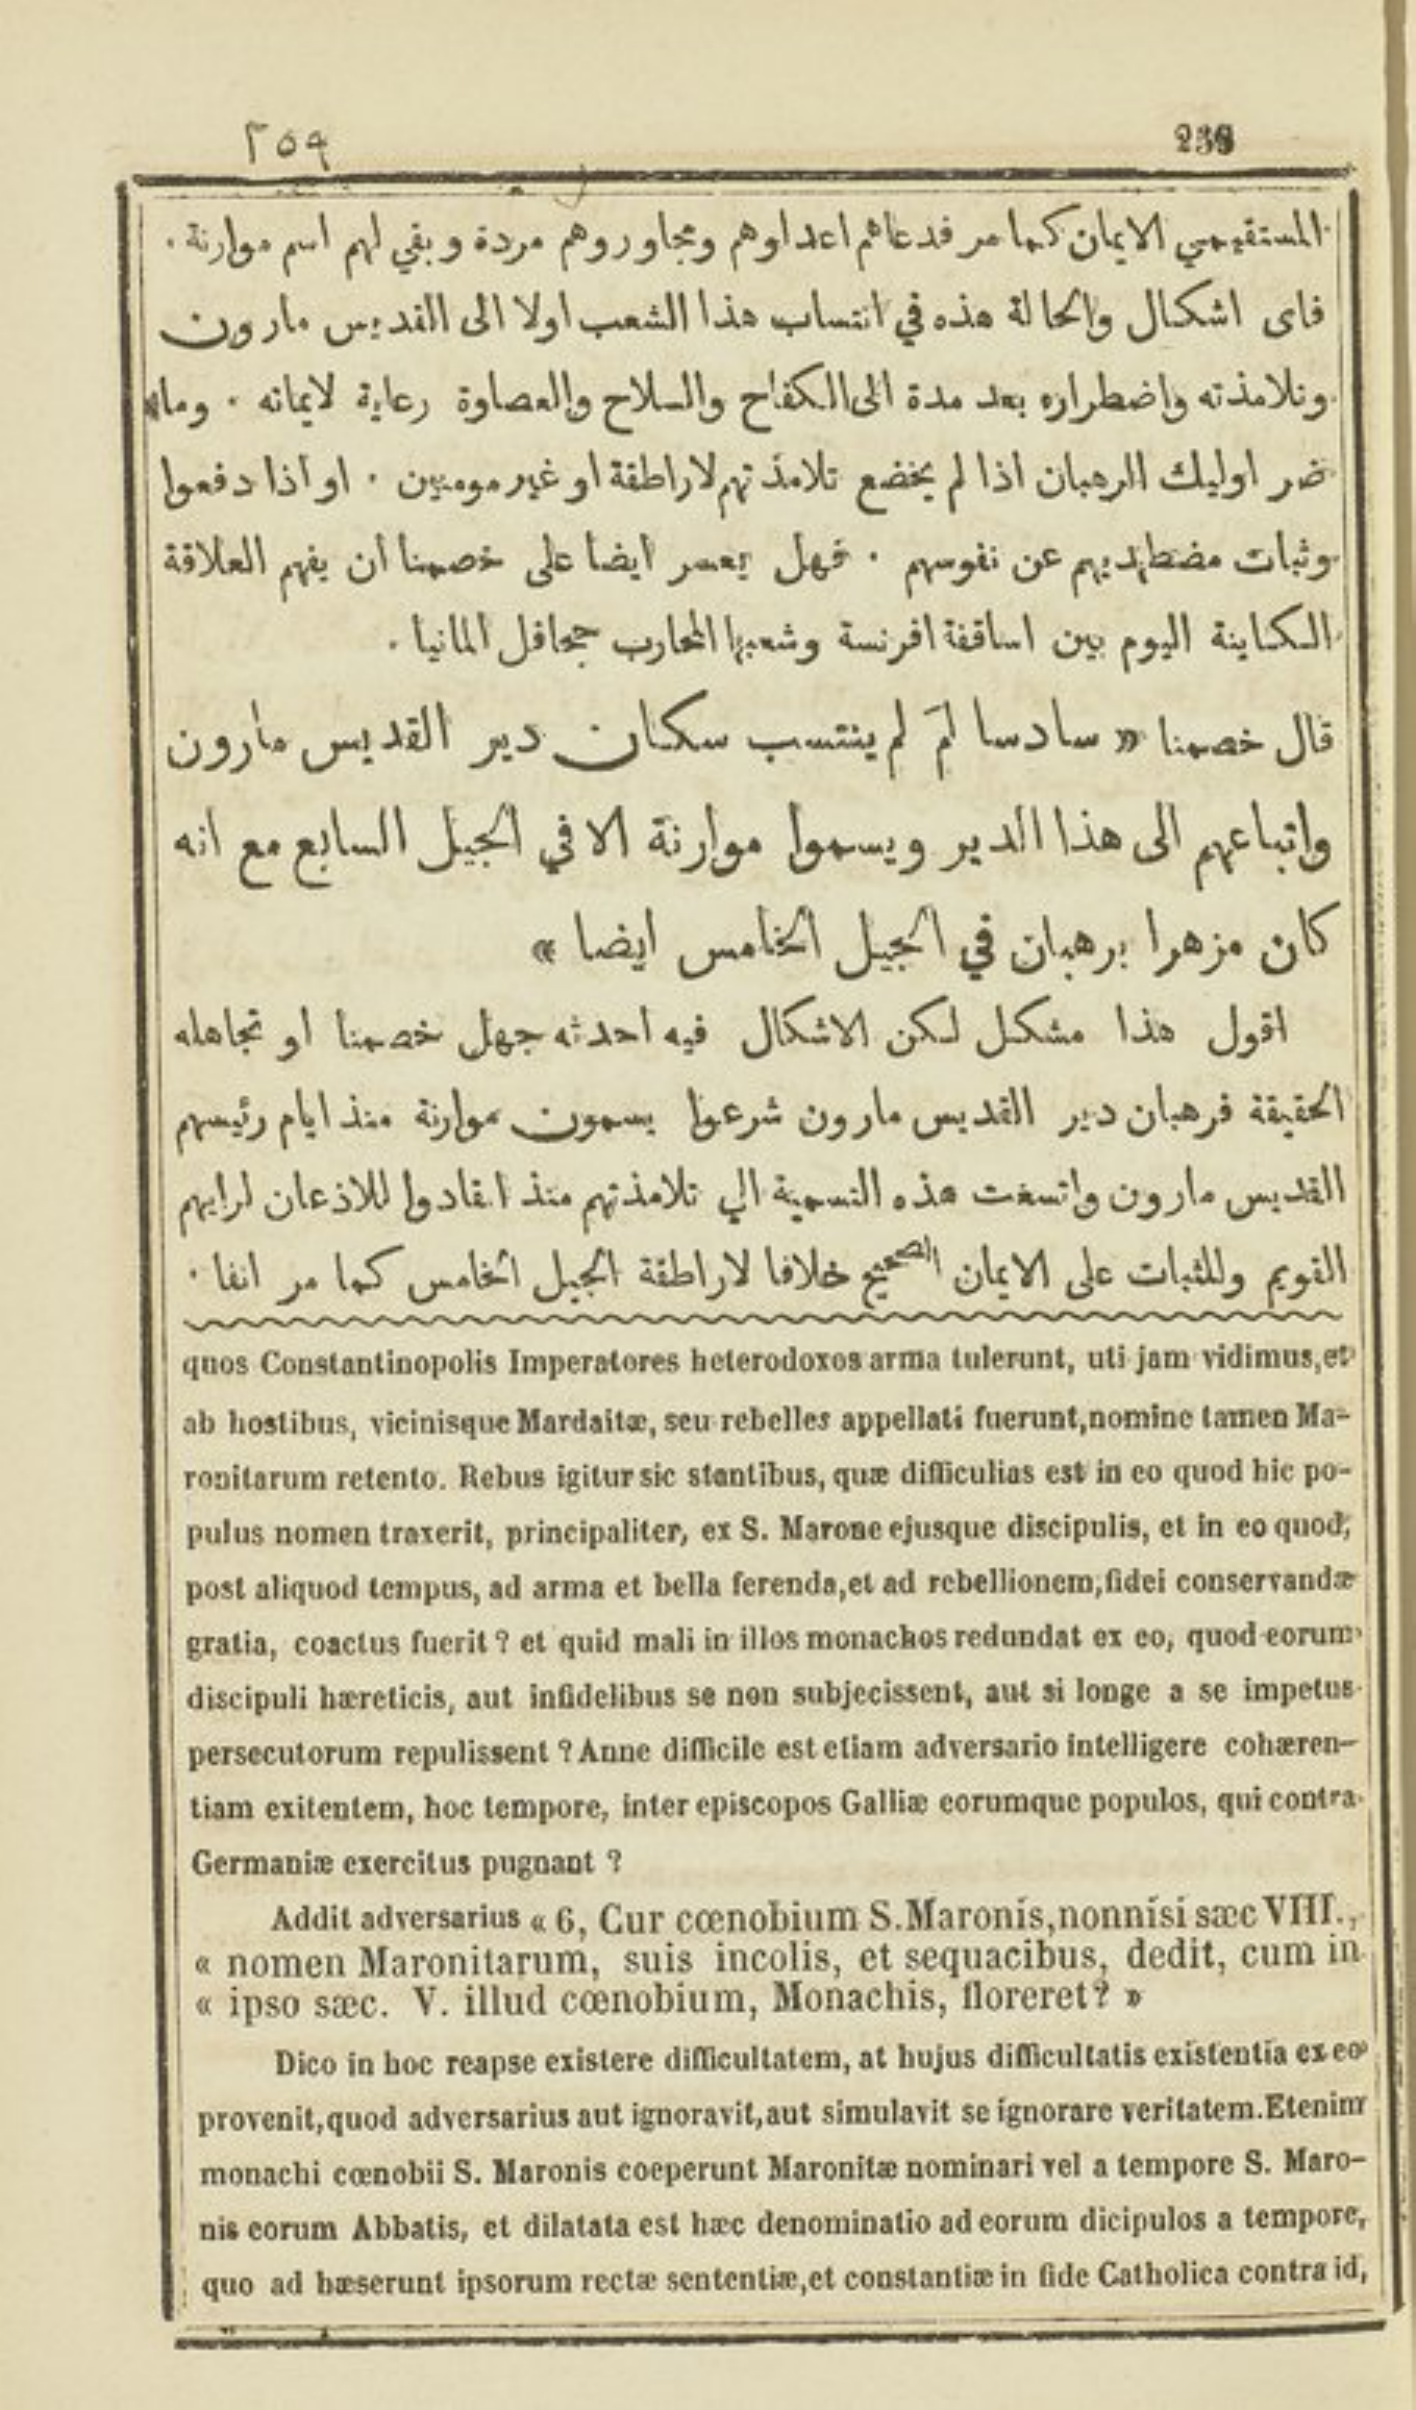 ٢٥٩
المستقيمي الايمان كما مر فدعاهم اعداوهم ومجاوروهم مردة وبقي لهم اسم موارنة ٠
فاى اشكال والحالة هذه في انتساب هذا الشعب اولا الى القديس مارون
وتلامذته واضطراره بعد مدة الى الكفاح والسلاح والعصاوة رعاية لايمانه ٠ وما
ضر اوليك الرهبان اذا لم يخضع تلامذتهم لاراطقة او غير مومنين ٠ او اذا دفعوا
وثبات مضطهديهم عن نفوسهم ٠ فهل يعسر ايضا على خصمنا ان يفهم العلاقة
الكاينة اليوم بين اساقفة افرنسة وشعبها المحارب جحافل المانيا ٠
قال خصمنا « سادسا لمَ لم ينتسب سكان دير القديس مارون
واتباعهم الى هذا الدير ويسموا موارنة الا في الجيل السابع مع انه
كان مزهرا برهبان في الجيل الخامس ايضا »
اقول هذا مشكل لكن الاشكال فيه احدثه جهل خصمنا او تجاهله
الحقيقة فرهبان دير القديس مارون شرعوا يسمون موارنة منذ ايام رئيسهم
القديس مارون واتسعت هذه التسمية الي تلامذتهم منذ انقادوا للاذعان لرايهم
القويم وللثبات على الايمان الصحيح خلافا لاراطقة الجيل الخامس كما مر انفا ٠
quos Constantinopolis Imperatores heterodoxos arma tulerunt, uti jam vidimus, et
ab hostibus, vicinisque Mardaitæ, seu rebelles appellati fuerunt, nomine tamen Ma-
ronitarum retento. Rebus igitur sic stantibus, quæ difficulias est in eo quod hic po-
pulus nomen traxerit, principaliter, ex S. Marone ejusque discipulis, et in eo quod,
post aliquod tempus, ad arma et bella ferenda, et ad rebellionem, fidei conservandæ
gratia, coactus fuerit ? et quid mali in illos monachos redundat ex eo, quod eorum
discipuli hæreticis, aut infidelibus se non subjecissent, aut si longe a se impetus
persecutorum repulissent ? Anne difficile est etiam adversario intelligere cohæren-
tiam exitentem, hoc tempore, inter episcopos Galliæ eorumque populos, qui contra
Germaniæ exercitus pugnant ?
Addit adversarius « 6, Cur cœnobium S. Maronis, nonnisi sæc VIII.,
« nomen Maronitarum, suis incolis, et sequacibus, dedit, cum in
« ipso sæc. V. illud cœnobium, Monachis, floreret? »
Dico in hoc reapse existere difficultatem, at hujus difficultatis existentia ex eo
provenit, quod adversarius aut ignoravit, aut simulavit se ignorare veritatem. Etenim
monachi cœnobii S. Maronis coeperunt Maronitæ nominari vel a tempore S. Maro-
nis eorum Abbatis, et dilatata est hæc denominatio ad eorum dicipulos a tempore,
quo ad hæserunt ipsorum rectæ sententiæ, et constantiæ in fide Catholica contra id,